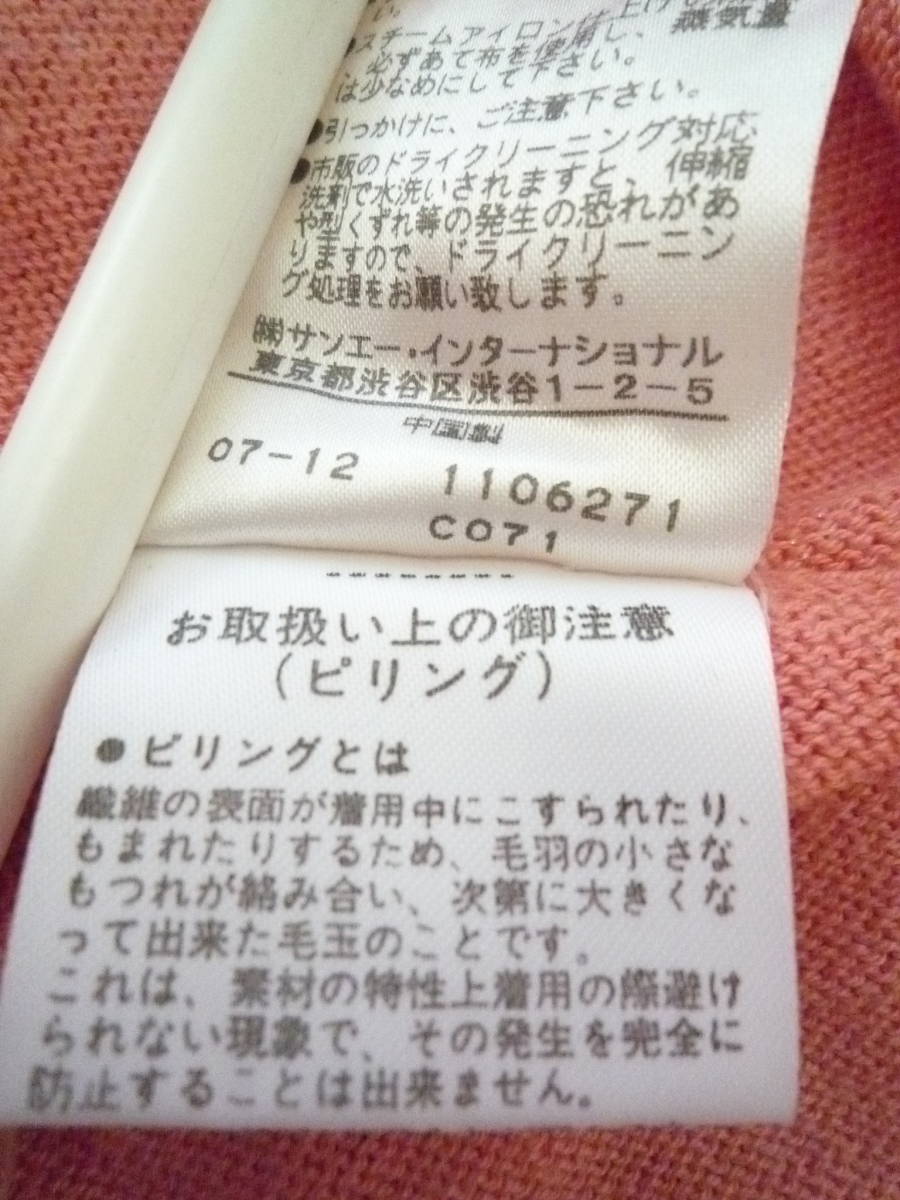 い。
●スチームアイロン仕上げし
必ずあて布を使用し、蒸気量
は少なめにして下さい。
●引っかけに、ご注意下さい。
●市販のドライクリーニング対応
洗剤で水洗いされますと、伸縮
や型くずれ等の発生の恐れがあ
りますので、ドライクリーニン
グ処理をお願い致します。
㈱サンエー・インターナショナル
東京都渋谷区渋谷1-2-5
中国製
07-12 1106271
C071
お取扱い上の御注意
(ピリング)
●ピリングとは
繊維の表面が着用中にこすられたり、
もまれたりするため、毛羽の小さな
もつれが絡み合い、次第に大きくな
って出来た毛玉のことです。
これは、素材の特性上着用の際避け
られない現象で、その発生を完全に
防止することは出来ません。